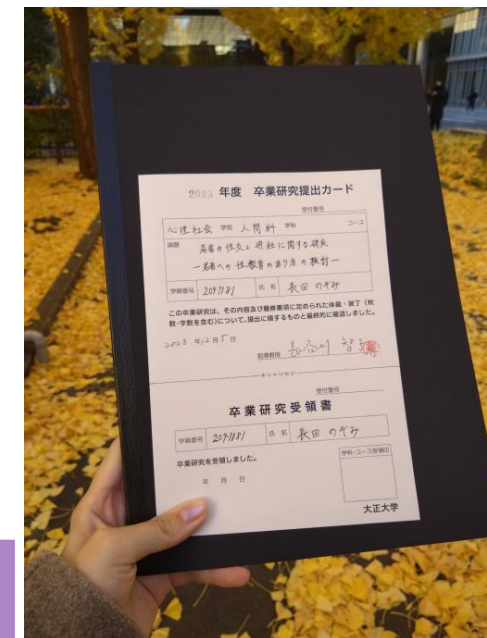 2023 年度 卒業研究提出カード
受付番号
心理社会 学部 人間科 学科 コース
課題 若者の性交と避妊に関する研究
―若者への性教育のあり方の検討―
学籍番号 2041181 氏名 長田 のぞみ
この卒業研究は、その内容及び履修要項に定められた体裁・装丁(枚
数・字数を含む)について、提出に値するものと最終的に確認しました。
2023 年12月5日
指導教授 長谷川 智子
キリトリセン
受付番号
卒業研究受領書
学籍番号 2041181 氏名 長田 のぞみ
卒業研究を受領しました。
学科・コース受領印
年 月 日
大正大学